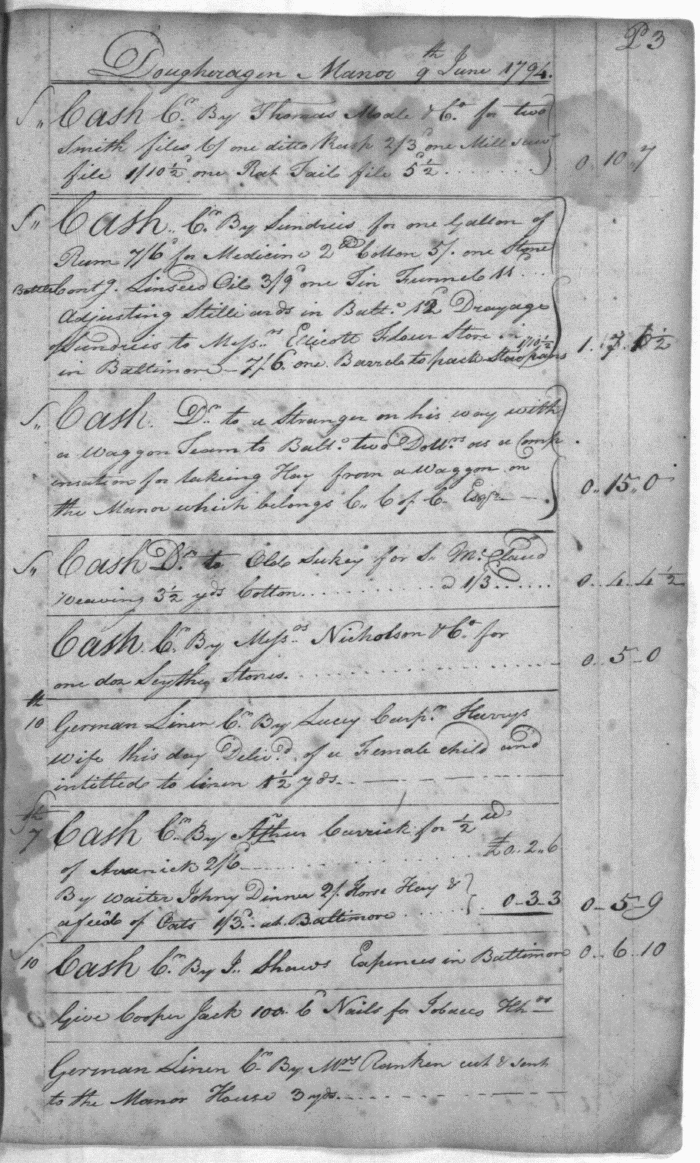 P 3
Dougheragen Manor 9th June 1794.
S,, Cash Cr By Thomas Moale & Co for two
Smith files 6/ one ditto Rasp 2/3d one Mill saw
file 1/10½d one Rat Tail file 5½ 0..10..7
S,, Cash,, Cr By Sundries for one Gallon of
Rum 7/6d for Medicine 2 lb Cotton 5/. one Stone
Bottle Contg. Linseed Oil 3/9d one Tin Funnel
Adjusting Stilliards in Balto Drayage
of Sundries to Messrs Ellicott Flour Store in
in Baltimore 7/6 one Barrel to pack Stew pans 1/10½ 1..
S,, Cash. Dr to a Stranger on his way with
a Waggon Team to Balto two Dollrs as a Comp
insation for taking Hay from a Waggon on
the Manor which belongs C. C of C Esqr 0..15..0
S,, Cash Dr to Old Sukey for S. McCland
Weaving 3½ yds Cotton a 1/3 0..4..4½
Cash Cr By Messrs Nicholson & Co for
one doz Scythe Stones. 0..5..0
th
10 German Linen Cr By Lucey Carpr Harrys
Wife this day Delivd. of a Female child and
intitled to linen 1½ yds.
th
7 Cash Cr By Arthur Carrick for ½ lb
of Arsenick 2/6 £0..2..6
By waiter Johny Dinner 2/. Horse Hay &
a feed of Oats 1/3d. at Baltimore 0-3-3 0-5-9
10 Cash Cr By J. Shaws Expences in Baltimore 0..6..10
Give Cooper Jack 100. 6d Nails for Tobacco Hhds
German Linen Cr By Mrs Ranken cut & sent
to the Manor House 3 yds.